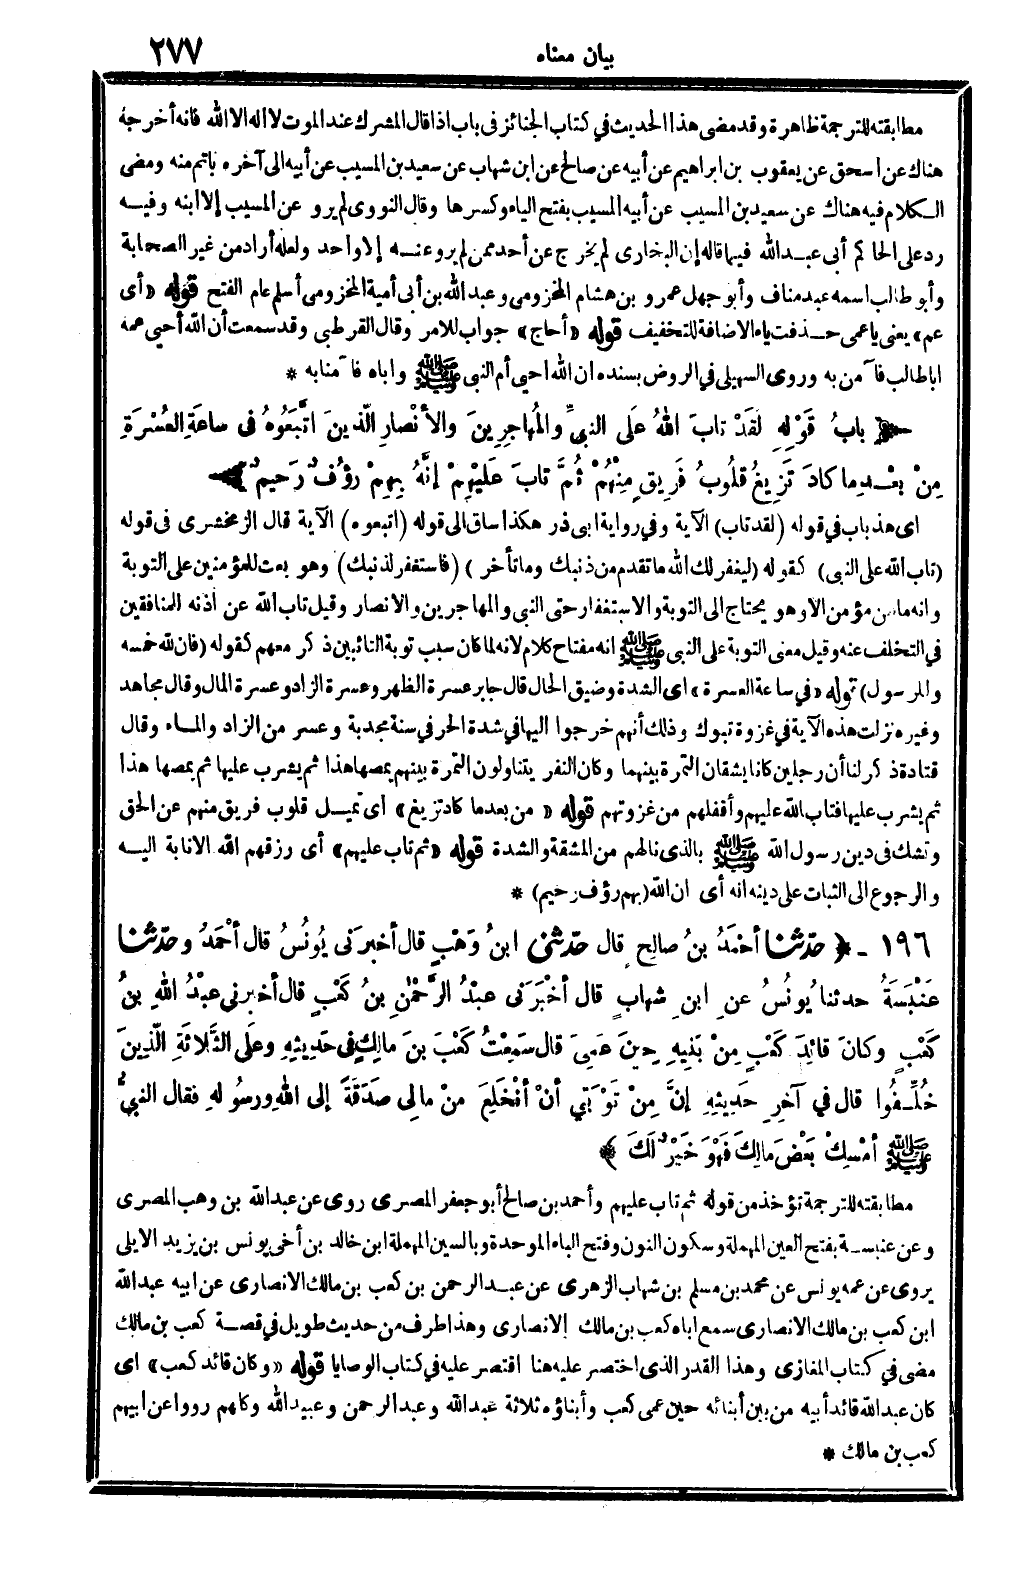 بيان معناه ٢٧٧
مطابقته للترجمة ظاهرة وقد مضى هذا الحديث في كتاب الجنائز فى باب اذا قال المشرك عند الموت لا اله الا الله فانه أخرجه
هناك عن اسحق عن يعقوب بن ابراهيم عن أبيه عن صالح عن ابن شهاب عن سعيد بن المسيب عن أبيه الى آخره باتم منه ومضى
الكلام فيه هناك عن سعيد بن المسيب عن أبيه المسيب بفتح الياء وكسرها وقال النووى لم يرو عن المسيب إلا ابنه وفيه
رد على الحاكم أبى عبد الله فيما قاله إن البخارى لم يخرج عن أحد ممن لم يرو عنه إلا واحد ولعله أراد من غير الصحابة
وأبو طالب اسمه عبد مناف وأبو جهل عمرو بن هشام المخزومى وعبد الله بن أبى أمية المخزومى أسلم عام الفتح قوله «أى
عم» يعنى يا عمى حذفت ياء الاضافة للتخفيف قوله «أحاج» جواب للامر وقال القرطبى وقد سمعت أن الله أحيى عمه
ابا طالب فآمن به وروى السهيلى في الروض بسنده ان الله احيى أم النبى ﷺ واباه فآمنا به *
﴿ باب قَوْلِهِ لَقَدْ تابَ اللهُ عَلَى النبيِّ والْمُهاجِرِينَ والأنْصارِ الَّذينَ اتَّبَعُوهُ فى ساعَةِ العُسْرَةِ
مِنْ بَعْدِ ما كادَ تَزِيغُ قُلُوبُ فَرِيقٍ مِنْهُمْ ثُمَّ تابَ عَلَيْهِمْ إنَّهُ بِهِمْ رَؤُفٌ رَحيمٌ ﴾
اى هذا باب في قوله (لقد تاب) الآية وفي رواية ابى ذر هكذا ساق الى قوله (اتبعوه) الآية قال الزمخشرى فى قوله
(تاب الله على النبى) كقوله (ليغفر لك الله ما تقدم من ذنبك وما تأخر) (فاستغفر لذنبك) وهو بعث للمؤمنين على التوبة
وانه ما من مؤمن الا وهو يحتاج الى التوبة والاستغفار حتى النبى والمهاجرين والانصار وقيل تاب الله عن أذنه المنافقين
في التخلف عنه وقيل معنى التوبة على النبى ﷺ انه مفتاح كلام لانه لما كان سبب توبة التائبين ذكر معهم كقوله (فان لله خمسه
وللرسول) قوله «في ساعة العسرة» اى الشدة وضيق الحال قال جابر عسرة الظهر وعسرة الزاد وعسرة المال وقال مجاهد
وغيره نزلت هذه الآية في غزوة تبوك وذلك أنهم خرجوا اليها في شدة الحر في سنة مجدبة وعسر من الزاد والماء وقال
قتادة ذكر لنا أن رجلين كانا يشقان التمرة بينهما وكان النفر يتناولون التمرة بينهم يمصها هذا ثم يشرب عليها ثم يمصها هذا
ثم يشرب عليها فتاب الله عليهم وأقفلهم من غزوتهم قوله «من بعد ما كاد تزيغ» اى تميل قلوب فريق منهم عن الحق
وتشك فى دين رسول الله ﷺ بالذى نالهم من المشقة والشدة قوله «ثم تاب عليهم» أى رزقهم الله الانابة اليه
والرجوع الى الثبات على دينه انه أى ان الله (بهم رؤف رحيم) *
١٩٦ - ﴿ حدّثنا أحْمَدُ بنُ صالِحٍ قال حدّثنى ابنُ وَهْبٍ قال أخبرنى يُونُسُ قال أحْمَدُ وحدّثنا
عَنْبَسَةُ حدثنا يُونُسُ عنِ ابنِ شهابٍ قال أخْبَرَنى عبدُ الرَّحْمٰنِ بنُ كَعْبٍ قال أخبرنى عبْدُ اللهِ بنُ
كَعْبٍ وكانَ قائِدَ كَعْبٍ مِنْ بَنِيهِ حِينَ عَمِىَ قال سَمِعْتُ كَعْبَ بنَ مالِكٍ فى حَدِيثِهِ وعلَى الثَّلاثَةِ الَّذِينَ
خُلِّفُوا قال في آخرِ حَدِيثِهِ إنَّ مِنْ تَوْبَتِي أنْ أنْخَلِعَ مِنْ مالِى صَدَقَةً إلى اللهِ ورسُولِهِ فقال النبيُّ
ﷺ أمْسِكْ بَعْضَ مالِكَ فَهْوَ خَيْرٌ لَكَ ﴾
مطابقته للترجمة تؤخذ من قوله ثم تاب عليهم وأحمد بن صالح أبو جعفر المصرى روى عن عبد الله بن وهب المصرى
وعن عنبسة بفتح العين المهملة وسكون النون وفتح الباء الموحدة وبالسين المهملة ابن خالد بن أخى يونس بن يزيد الايلى
يروى عن عمه يونس عن محمد بن مسلم بن شهاب الزهرى عن عبد الرحمن بن كعب بن مالك الانصارى عن ابيه عبد الله
ابن كعب بن مالك الانصارى سمع اباه كعب بن مالك الانصارى وهذا طرف من حديث طويل في قصة كعب بن مالك
مضى في كتاب المغازى وهذا القدر الذى اختصر عليه هنا اقتصر عليه في كتاب الوصايا قوله «وكان قائد كعب» اى
كان عبد الله قائد أبيه من بين أبنائه حين عمى كعب وأبناؤه ثلاثة عبد الله وعبد الرحمن وعبيد الله وكلهم رووا عن ابيهم
كعب بن مالك *